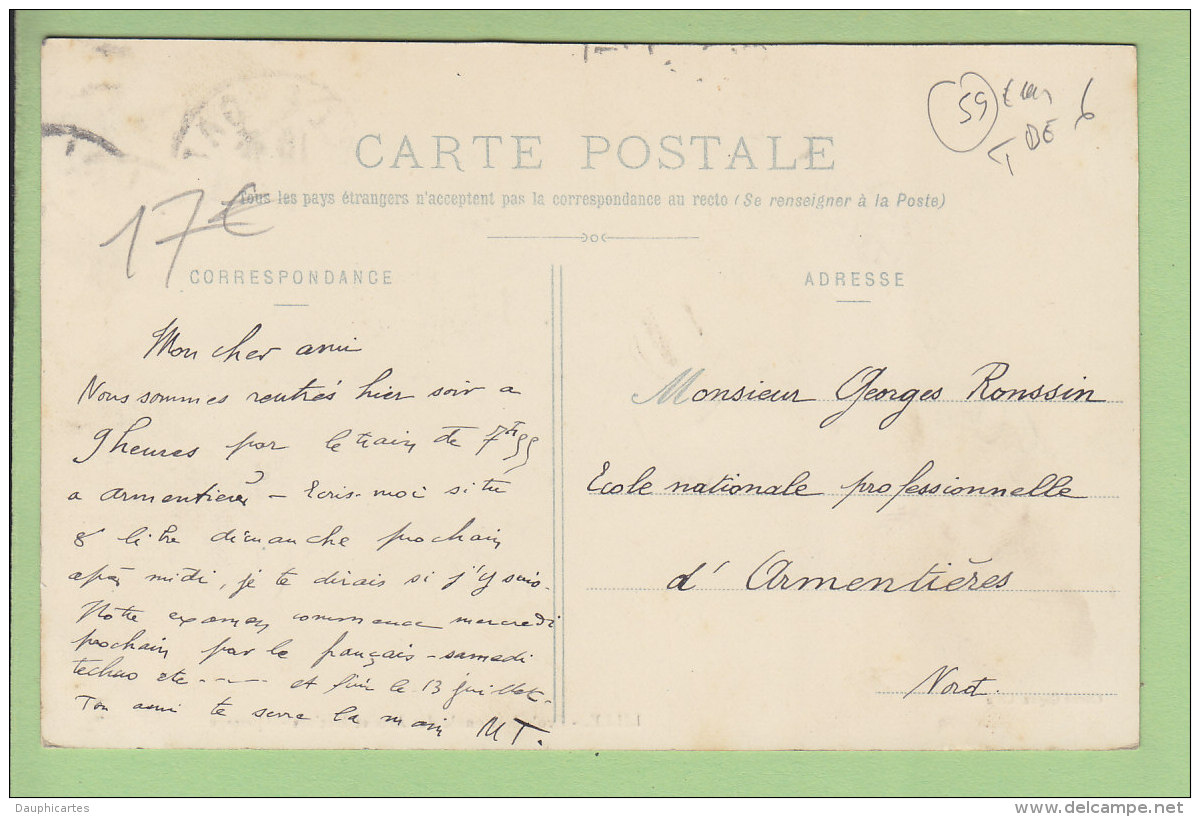 59
6
DE
CARTE POSTALE
Tous les pays étrangers n'acceptent pas la correspondance au recto (Se renseigner à la Poste)
17€
CORRESPONDANCE
Mon cher ami
Nous sommes rentrés hier soir a
9 heures par le train de 7h
a armentières - Ecris-moi si tu
libre dimanche prochain
après midi, je te dirais si j'y suis.
Notre examen commence mercredi
prochain par le français - samedi
techno etc---- et fini le 13 juillet.
Ton ami te serre la main MT.
ADRESSE
Monsieur Georges Ronssin
Ecole nationale professionnelle
d'Armentières
Nord.
Dauphicartes
delcampe.net